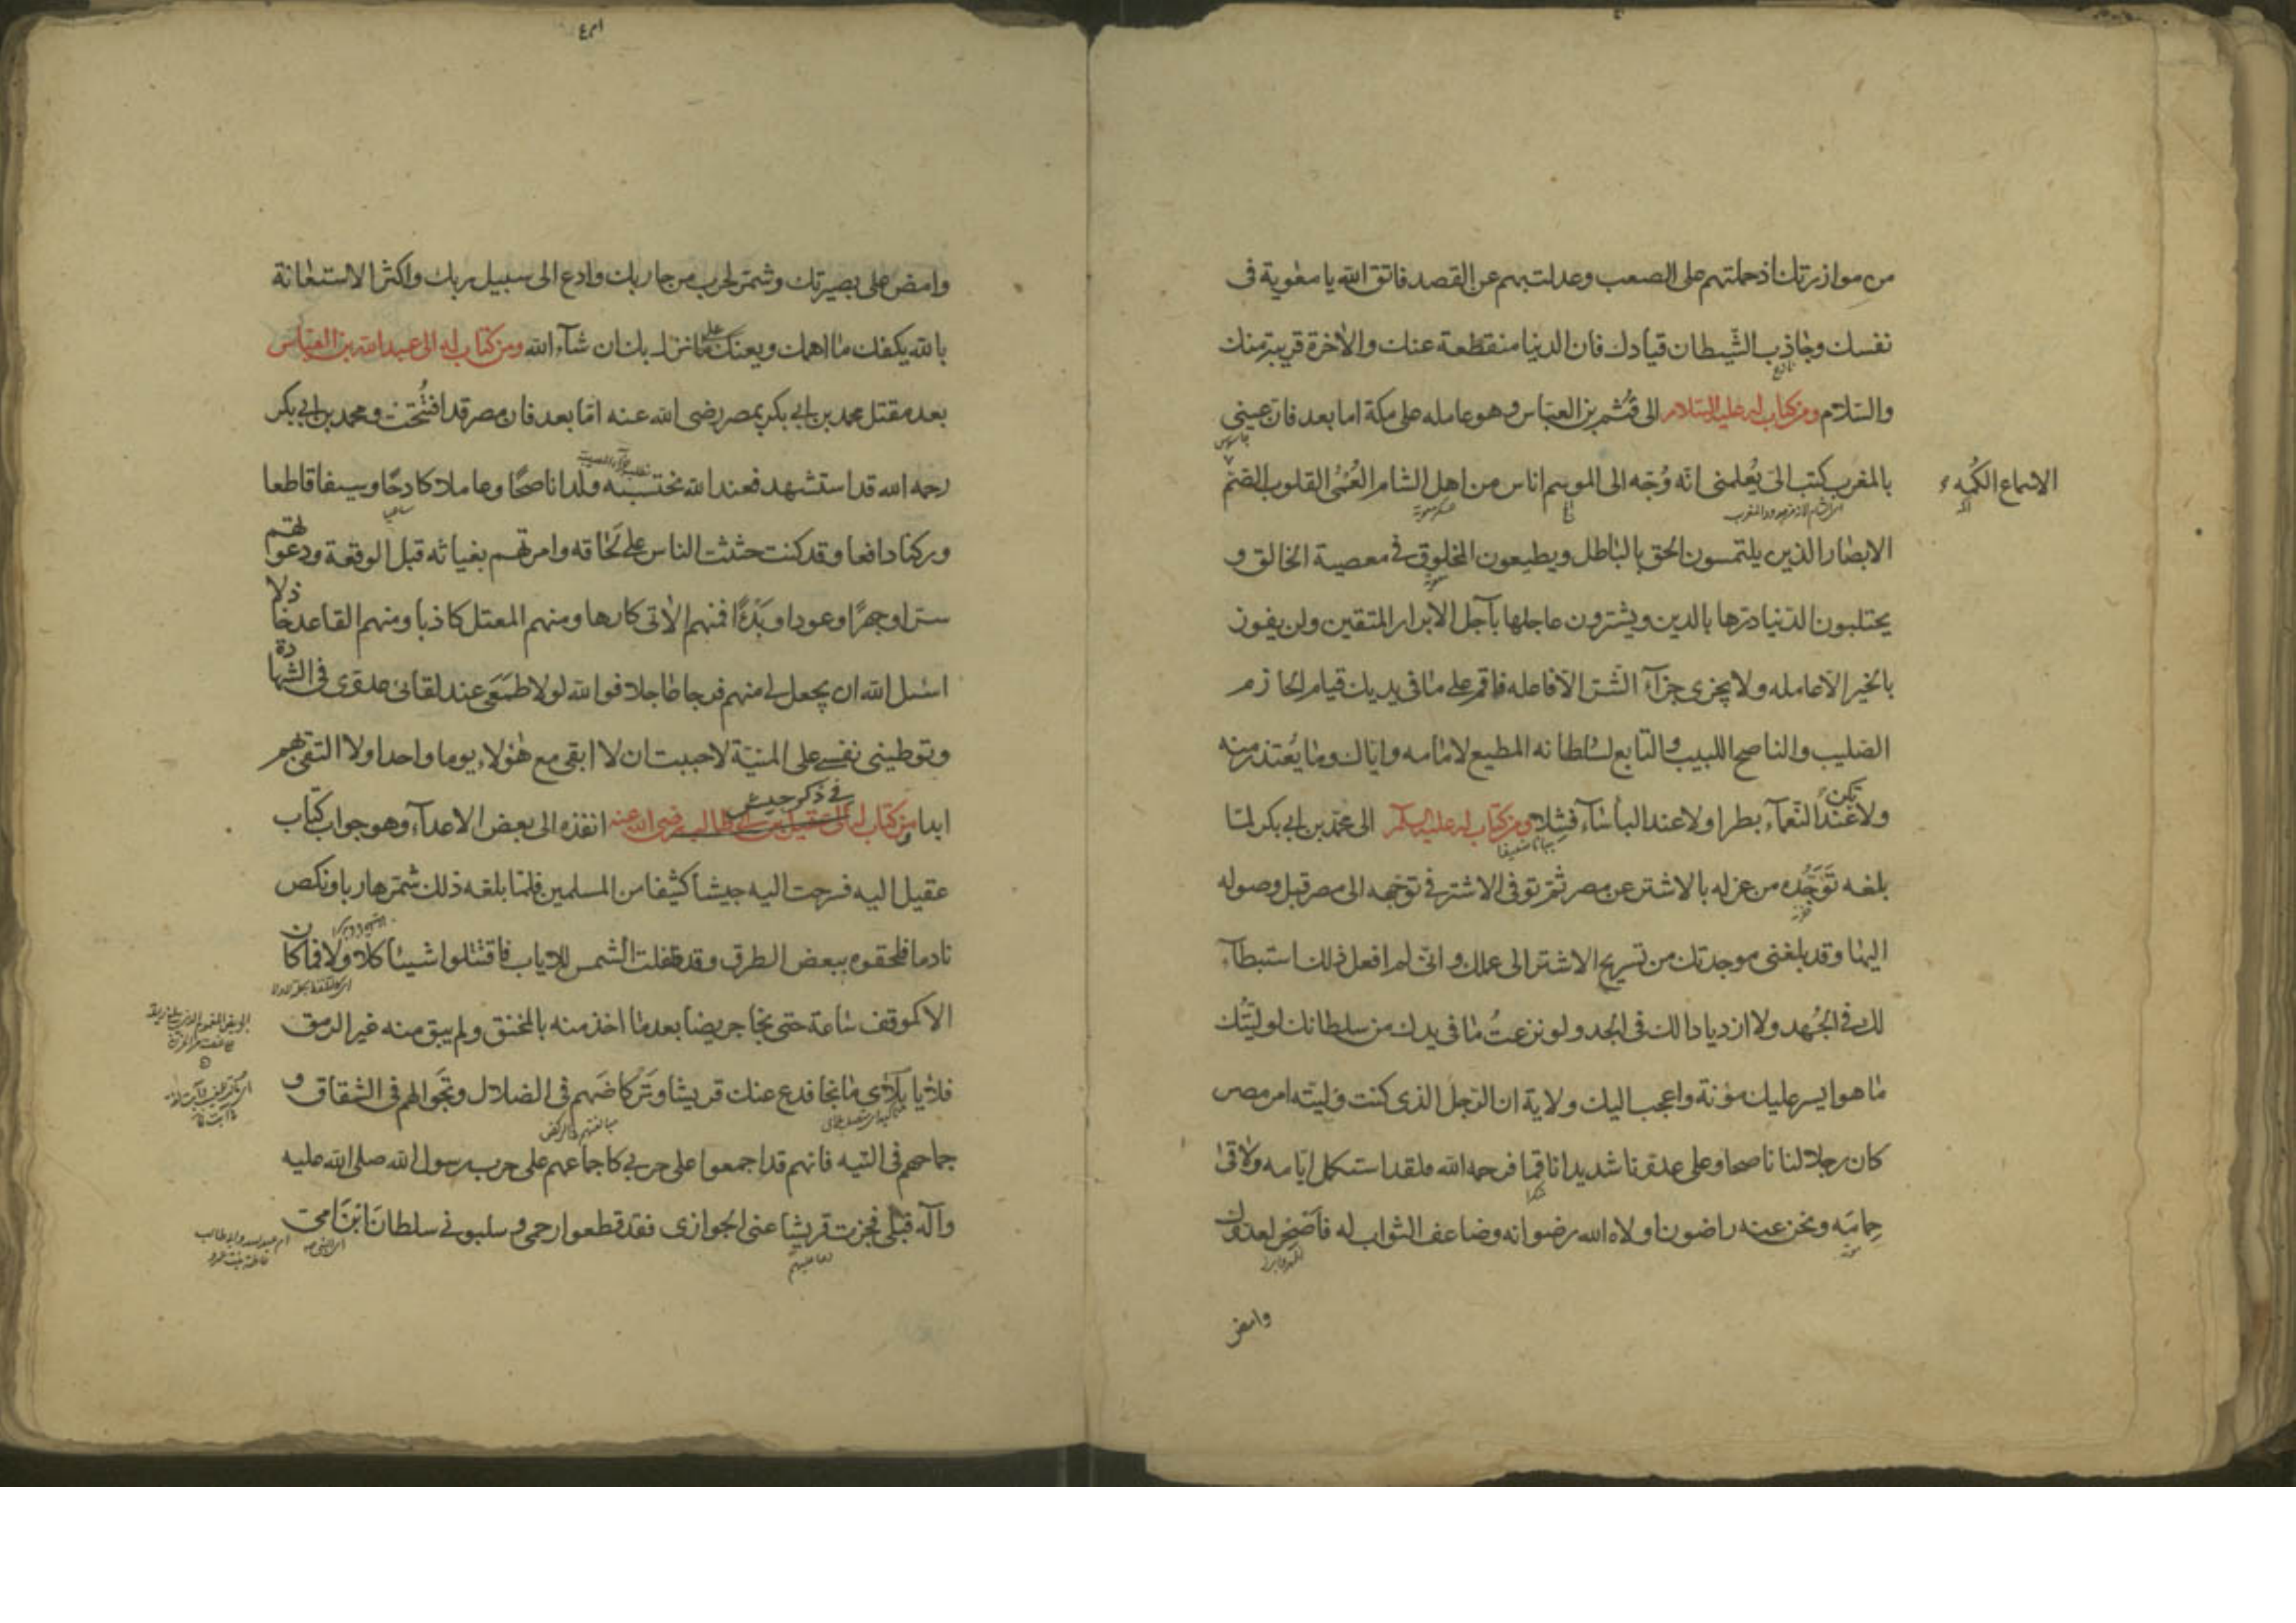 من موازرتك اذ حملتهم على الصعب وعدلت بهم عن القصد فاتق الله يا معوية فى
نفسك وجاذب الشيطان قيادك فان الدنيا منقطعة عنك والاخرة قريبة منك
والسلام ومن كتاب له عليه السلام الى قثم بن العباس وهو عامله على مكة اما بعد فان عينى
بالمغرب كتب الى يعلمنى انه وجه الى الموسم اناس من اهل الشام العمى القلوب الصم
الاسماع الكمه
الابصار الذين يلتمسون الحق بالباطل ويطيعون المخلوق فى معصية الخالق و
يحتلبون الدنيا درها بالدين ويشترون عاجلها بآجل الابرار المتقين ولن يفوز
بالخير الا عامله ولا يجزى جزآء الشر الا فاعله فاقم على ما فى يديك قيام الحازم
الصليب والناصح اللبيب والتابع لسلطانه المطيع لامامه واياك وما يعتذر منه
ولا تكن عند النعمآء بطرا ولا عند البأسآء فشلا ومن كتاب له عليه السلام الى محمد بن ابى بكر لما
بلغه توجده من عزله بالاشتر عن مصر ثم توفى الاشتر فى توجهه الى مصر قبل وصوله
اليها وقد بلغنى موجدتك من تسريح الاشتر الى عملك وانى لم افعل ذلك استبطآء
لك فى الجهد ولا ازديادا لك فى الجد ولو نزعت ما فى يدك من سلطانك لوليتك
ما هو ايسر عليك مؤنة واعجب اليك ولاية ان الرجل الذى كنت وليته امر مصر
كان رجلا لنا ناصحا وعلى عدونا شديدا ناقما فرحمه الله فلقد استكمل ايامه ولاقى
حمامه ونحن عنه راضون اولاه الله رضوانه وضاعف الثواب له فاصحر لعدوك
وامض
وامض على بصيرتك وشمر لحرب من حاربك وادع الى سبيل ربك واكثر الاستعانة
بالله يكفك ما اهمك ويعنك على ما نزل بك ان شآء الله ومن كتاب له الى عبد الله بن العباس
بعد مقتل محمد بن ابى بكر بمصر رضى الله عنه اما بعد فان مصر قد افتتحت ومحمد بن ابى بكر
رحمه الله قد استشهد فعند الله نحتسبه ولدا ناصحا وعاملا كادحا وسيفا قاطعا
وركنا دافعا وقد كنت حثثت الناس على لحاقه وامرتهم بغياثه قبل الوقعة ودعوتهم
سرا وجهرا وعودا وبدءا فمنهم الاتى كارها ومنهم المعتل كاذبا ومنهم القاعد خاذلا
اسئل الله ان يجعل لى منهم فرجا عاجلا فوالله لولا طمعى عند لقائى عدوى فى الشهادة
وتوطينى نفسى على المنية لاحببت ان لا ابقى مع هؤلاء يوما واحدا ولا التقى بهم
ابدا ومن كتاب له الى عقيل بن ابى طالب رضى الله عنه فى ذكر جيش انفذه الى بعض الاعدآء وهو جواب كتاب
عقيل اليه فسرحت اليه جيشا كثيفا من المسلمين فلما بلغه ذلك شمر هاربا ونكص
نادما فلحقوه ببعض الطرق وقد طفلت الشمس للاياب فاقتتلوا شيئا كلا ولا فما كان
الا كموقف ساعة حتى نجا جريضا بعد ما اخذ منه بالمخنق ولم يبق منه غير الرمق
فلايا بلاى ما نجا فدع عنك قريشا وتركاضهم فى الضلال وتجوالهم فى الشقاق و
جماحهم فى التيه فانهم قد اجمعوا على حربى كاجماعهم على حرب رسول الله صلى الله عليه
وآله قبلى فجزت قريشا عنى الجوازى فقد قطعوا رحمى وسلبونى سلطان ابن امى